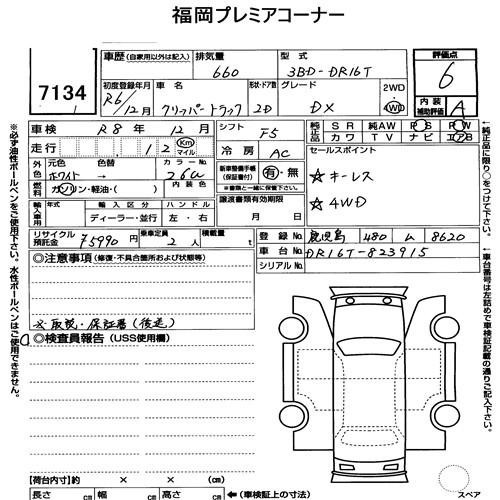 福岡プレミアコーナー
7134
車歴 (自家用以外は記入) 排気量 660 型式 3BD-DR16T 評価点 6
初度登録年月 R6/12月 車名 クリッパートラック 形状・ドア数 2D グレード DX 2WD 4WD 内装補助評価 A
車検 R8年 12月 シフト F5 純正品 SR 純AW PS PW
カワ TV ナビ エアB
走行 12 Km マイル 冷房 AC セールスポイント
外色 元色 ホワイト 色替 → カラーNo. 26U 新車整備手帳(保証書付) 有・無 ☆キーレス
※書類と一緒に提出
燃料 ガソリン・軽油・( ) 内装色 ☆4WD
輸入車用 年式 輸入区分 ディーラー・並行 ハンドル 左・右 譲渡書類有効期限 月 日
リサイクル預託金 ¥5990円 乗車定員 2人 積載量 t 登録No. 鹿児島 480 ム 8620
◎注意事項 (修復・不具合箇所および状態等) 車台No. DR16T-823915
シリアルNo.
※取説・保証書(後送)
◎検査員報告 (USS使用欄)
【荷台内寸】約 × × cm
長さ cm 幅 cm 高さ cm ←(車検証上の寸法)
スペア
※必ず油性ボールペンをご使用下さい。水性ボールペンはご使用できません。
←純正品に限り○をつけて下さい。
←車台番号は左詰めで車検証記載の通りご記入下さい。